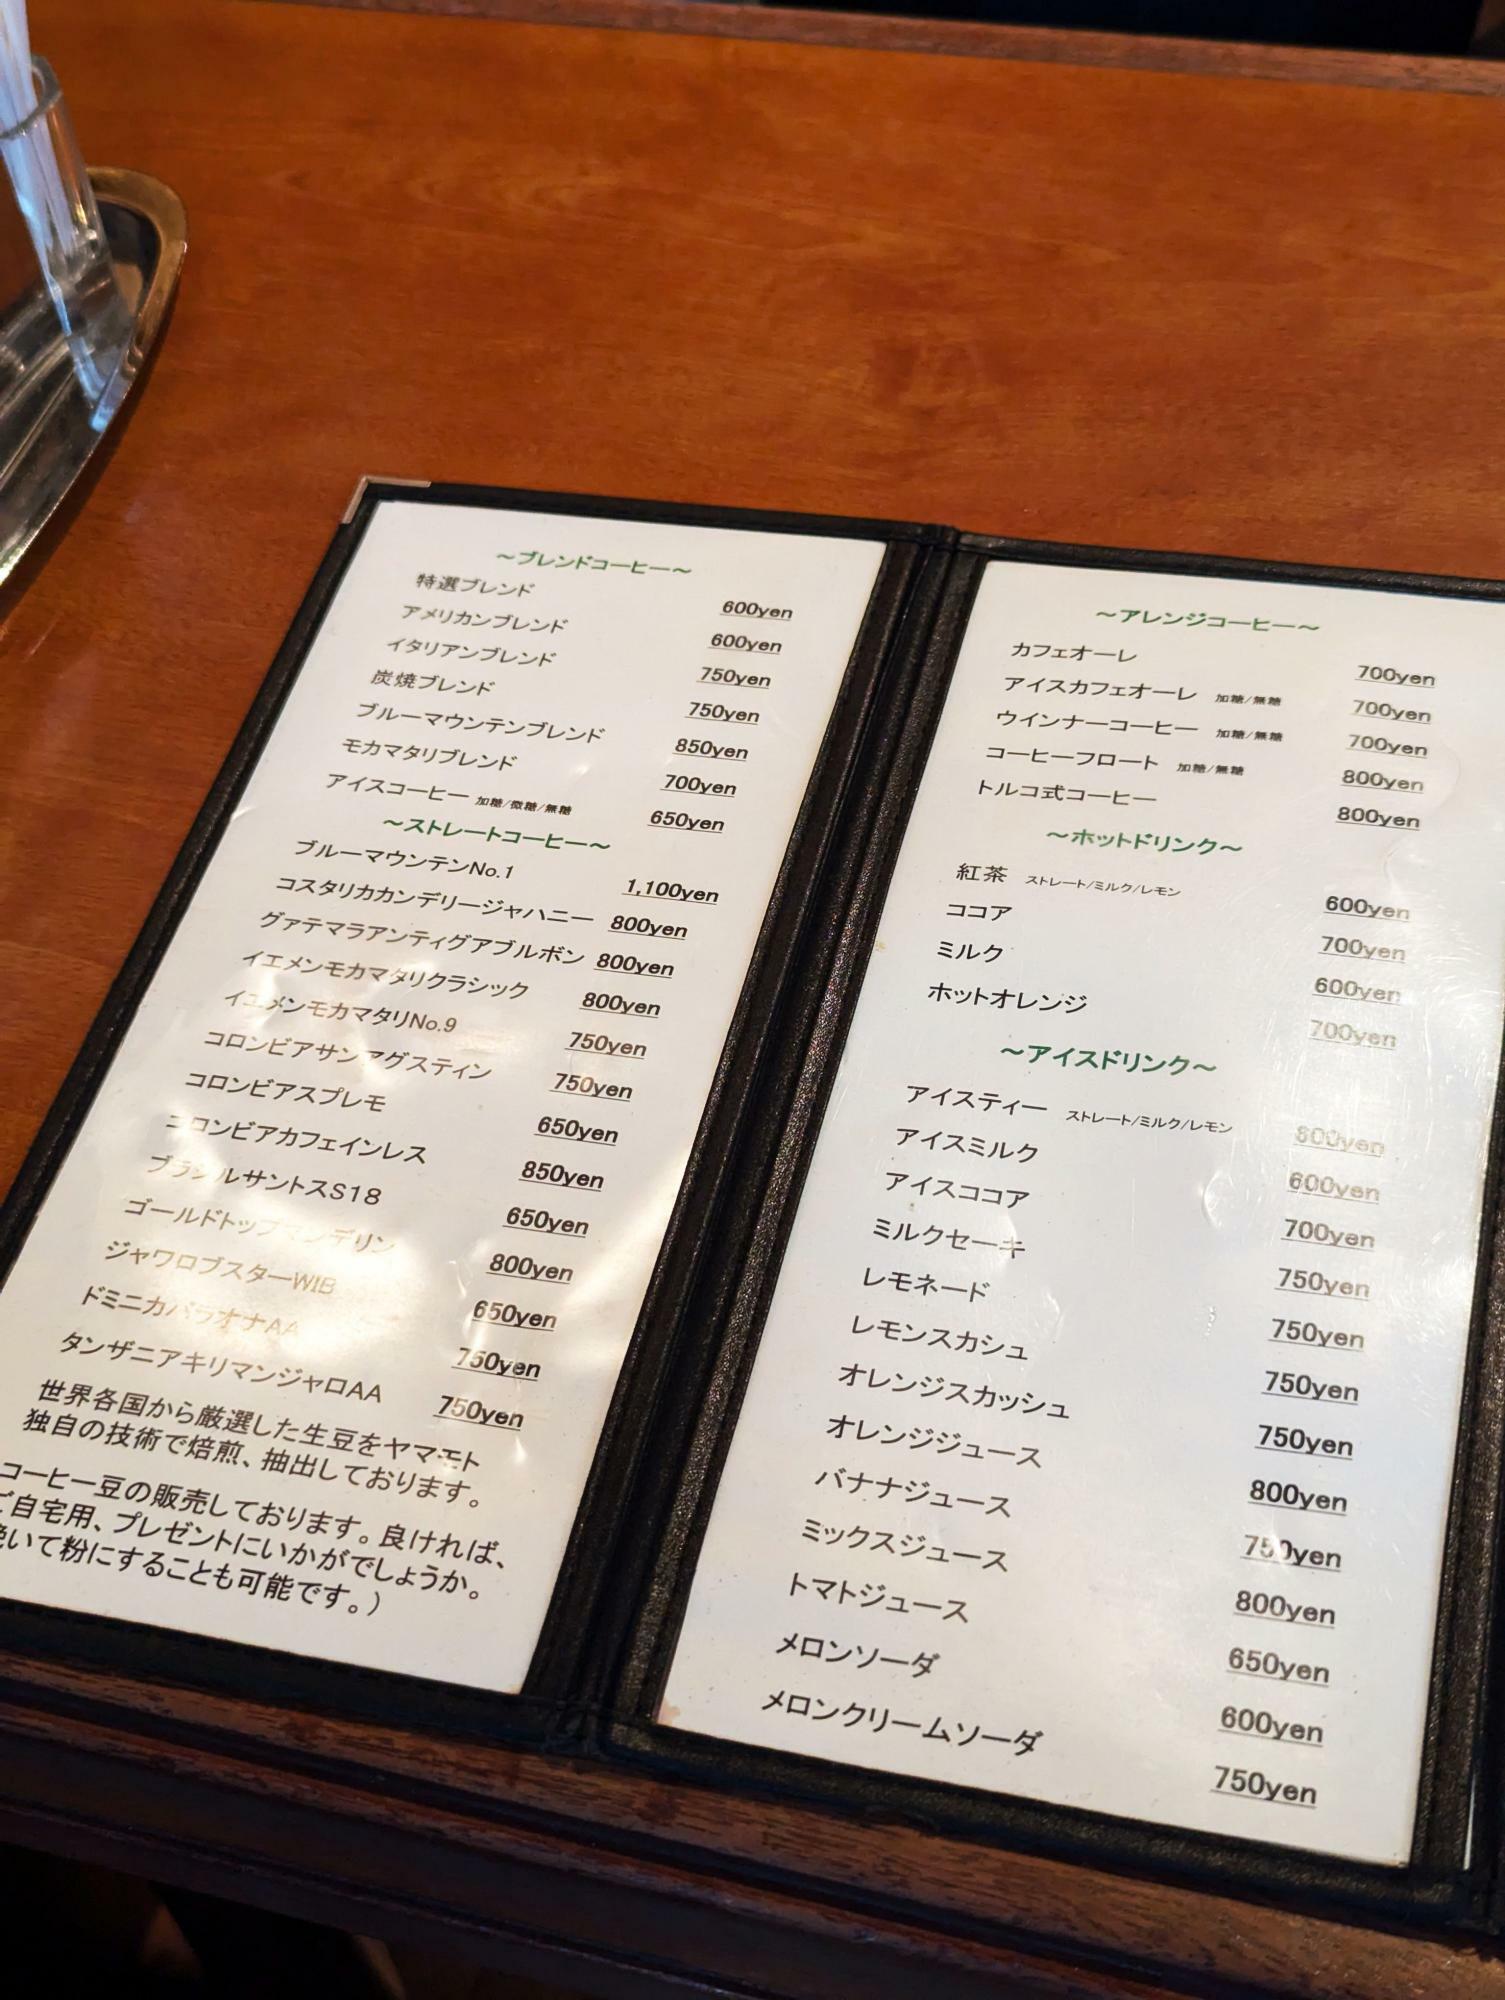 ～ブレンドコーヒー～
特選ブレンド 600yen
アメリカンブレンド 600yen
イタリアンブレンド 750yen
炭焼ブレンド 750yen
ブルーマウンテンブレンド 850yen
モカマタリブレンド 700yen
アイスコーヒー 加糖/微糖/無糖 650yen
～ストレートコーヒー～
ブルーマウンテンNo.1 1,100yen
コスタリカカンデリージャハニー 800yen
グァテマラアンティグアブルボン 800yen
イエメンモカマタリクラシック 800yen
イエメンモカマタリNo.9 750yen
コロンビアサンアグスティン 750yen
コロンビアスプレモ 650yen
コロンビアカフェインレス 850yen
ブラジルサントスS18 650yen
ゴールドトップマンデリン 800yen
ジャワロブスターWIB 650yen
ドミニカバラオナAA 750yen
タンザニアキリマンジャロAA 750yen
世界各国から厳選した生豆をヤマモト
独自の技術で焙煎、抽出しております。
コーヒー豆の販売しております。良ければ、
ご自宅用、プレゼントにいかがでしょうか。
挽いて粉にすることも可能です。）
～アレンジコーヒー～
カフェオーレ 700yen
アイスカフェオーレ 加糖/無糖 700yen
ウインナーコーヒー 加糖/無糖 700yen
コーヒーフロート 加糖/無糖 800yen
トルコ式コーヒー 800yen
～ホットドリンク～
紅茶 ストレート/ミルク/レモン 600yen
ココア 700yen
ミルク 600yen
ホットオレンジ 700yen
～アイスドリンク～
アイスティー ストレート/ミルク/レモン 600yen
アイスミルク 600yen
アイスココア 700yen
ミルクセーキ 750yen
レモネード 750yen
レモンスカシュ 750yen
オレンジスカッシュ 750yen
オレンジジュース 800yen
バナナジュース 750yen
ミックスジュース 800yen
トマトジュース 650yen
メロンソーダ 600yen
メロンクリームソーダ 750yen